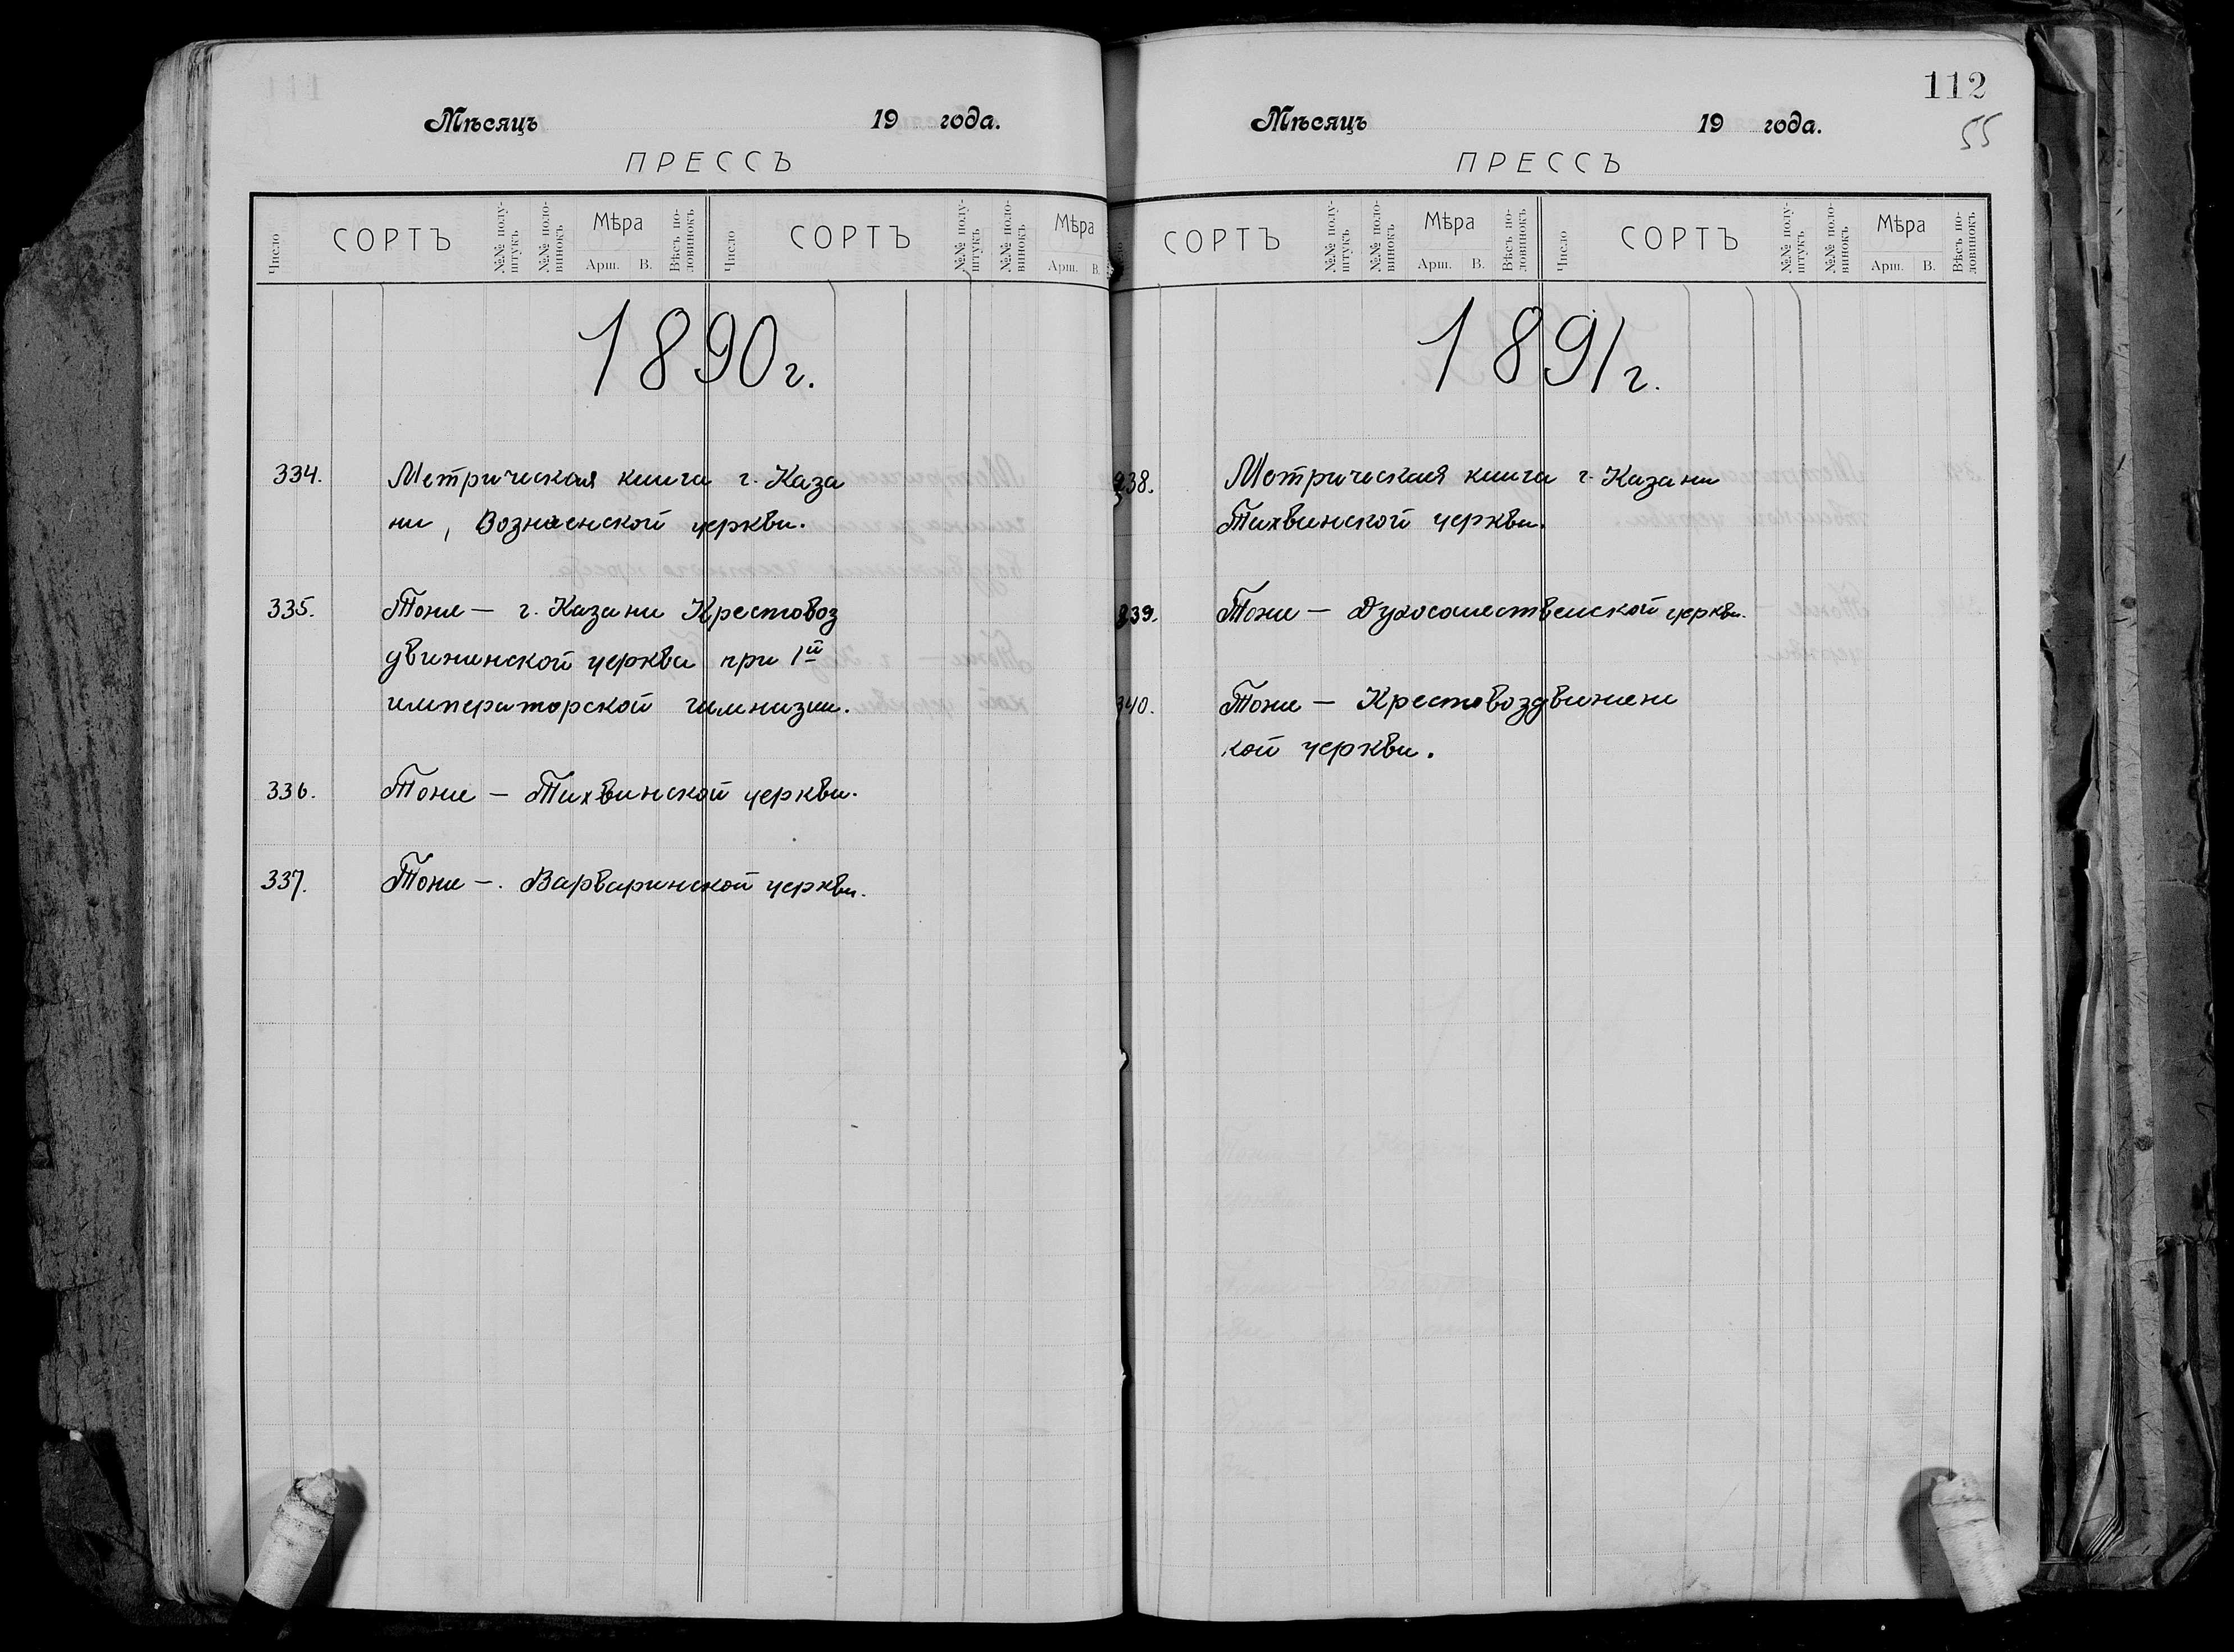 Мѣсяцъ 19 года.
ПРЕССЪ
Число СОРТЪ №№ полу-штукъ №№ поло-винокъ Мѣра Арш. В. Вѣсъ по-ловинокъ Число СОРТЪ №№ полу-штукъ №№ поло-винокъ Мѣра Арш. В.
1890 г.
334. Метрическая книга г. Каза
ни, Вознесенской церкви.
335. Тоже — г. Казани Крестовоз
движенской церкви при 1й
императорской гимназии.
336. Тоже — Тихвинской церкви.
337. Тоже —. Варваринской церкви.
112
55
Мѣсяцъ 19 года.
ПРЕССЪ
СОРТЪ №№ полу-штукъ №№ поло-винокъ Мѣра Арш. В. Вѣсъ по-ловинокъ Число СОРТЪ №№ полу-штукъ №№ поло-винокъ Мѣра Арш. В. Вѣсъ по-ловинокъ
1891 г.
338. Метрическая книга г. Казани
Тихвинской церкви.
339. Тоже — Духосошественской церкви.
340. Тоже — Крестовоздвижен
кой церкви.